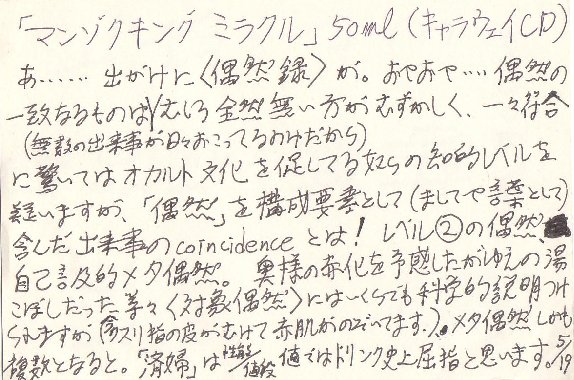 「マンゾクキング ミラクル」50ml(キャラウェイCD)
あ…… 出がけに〈偶然録〉が。おやおや…. 偶然の
一致なるものはむしろ全然無い方がむずかしく、一々符合
(無数の出来事が日々おこってるわけだから)
に驚いてはオカルト文化を促してる奴らの知的レベルを
疑いますが、「偶然」を構成要素として(ましてや言葉として)
含んだ出来事のcoincidenceとは! レベル②の偶然、
自己言及的メタ偶然。 奥様の赤化を予感したがゆえの湯
こぼしだった等々〈対象偶然〉にはいくらでも科学的説明つけ
られますが(クスリ指の皮がむけて赤肌がのぞいてます。)、メタ偶然しかも
複数となると。「済婦」は性能/値段 値ではドリンク史上屈指と思います。5/19